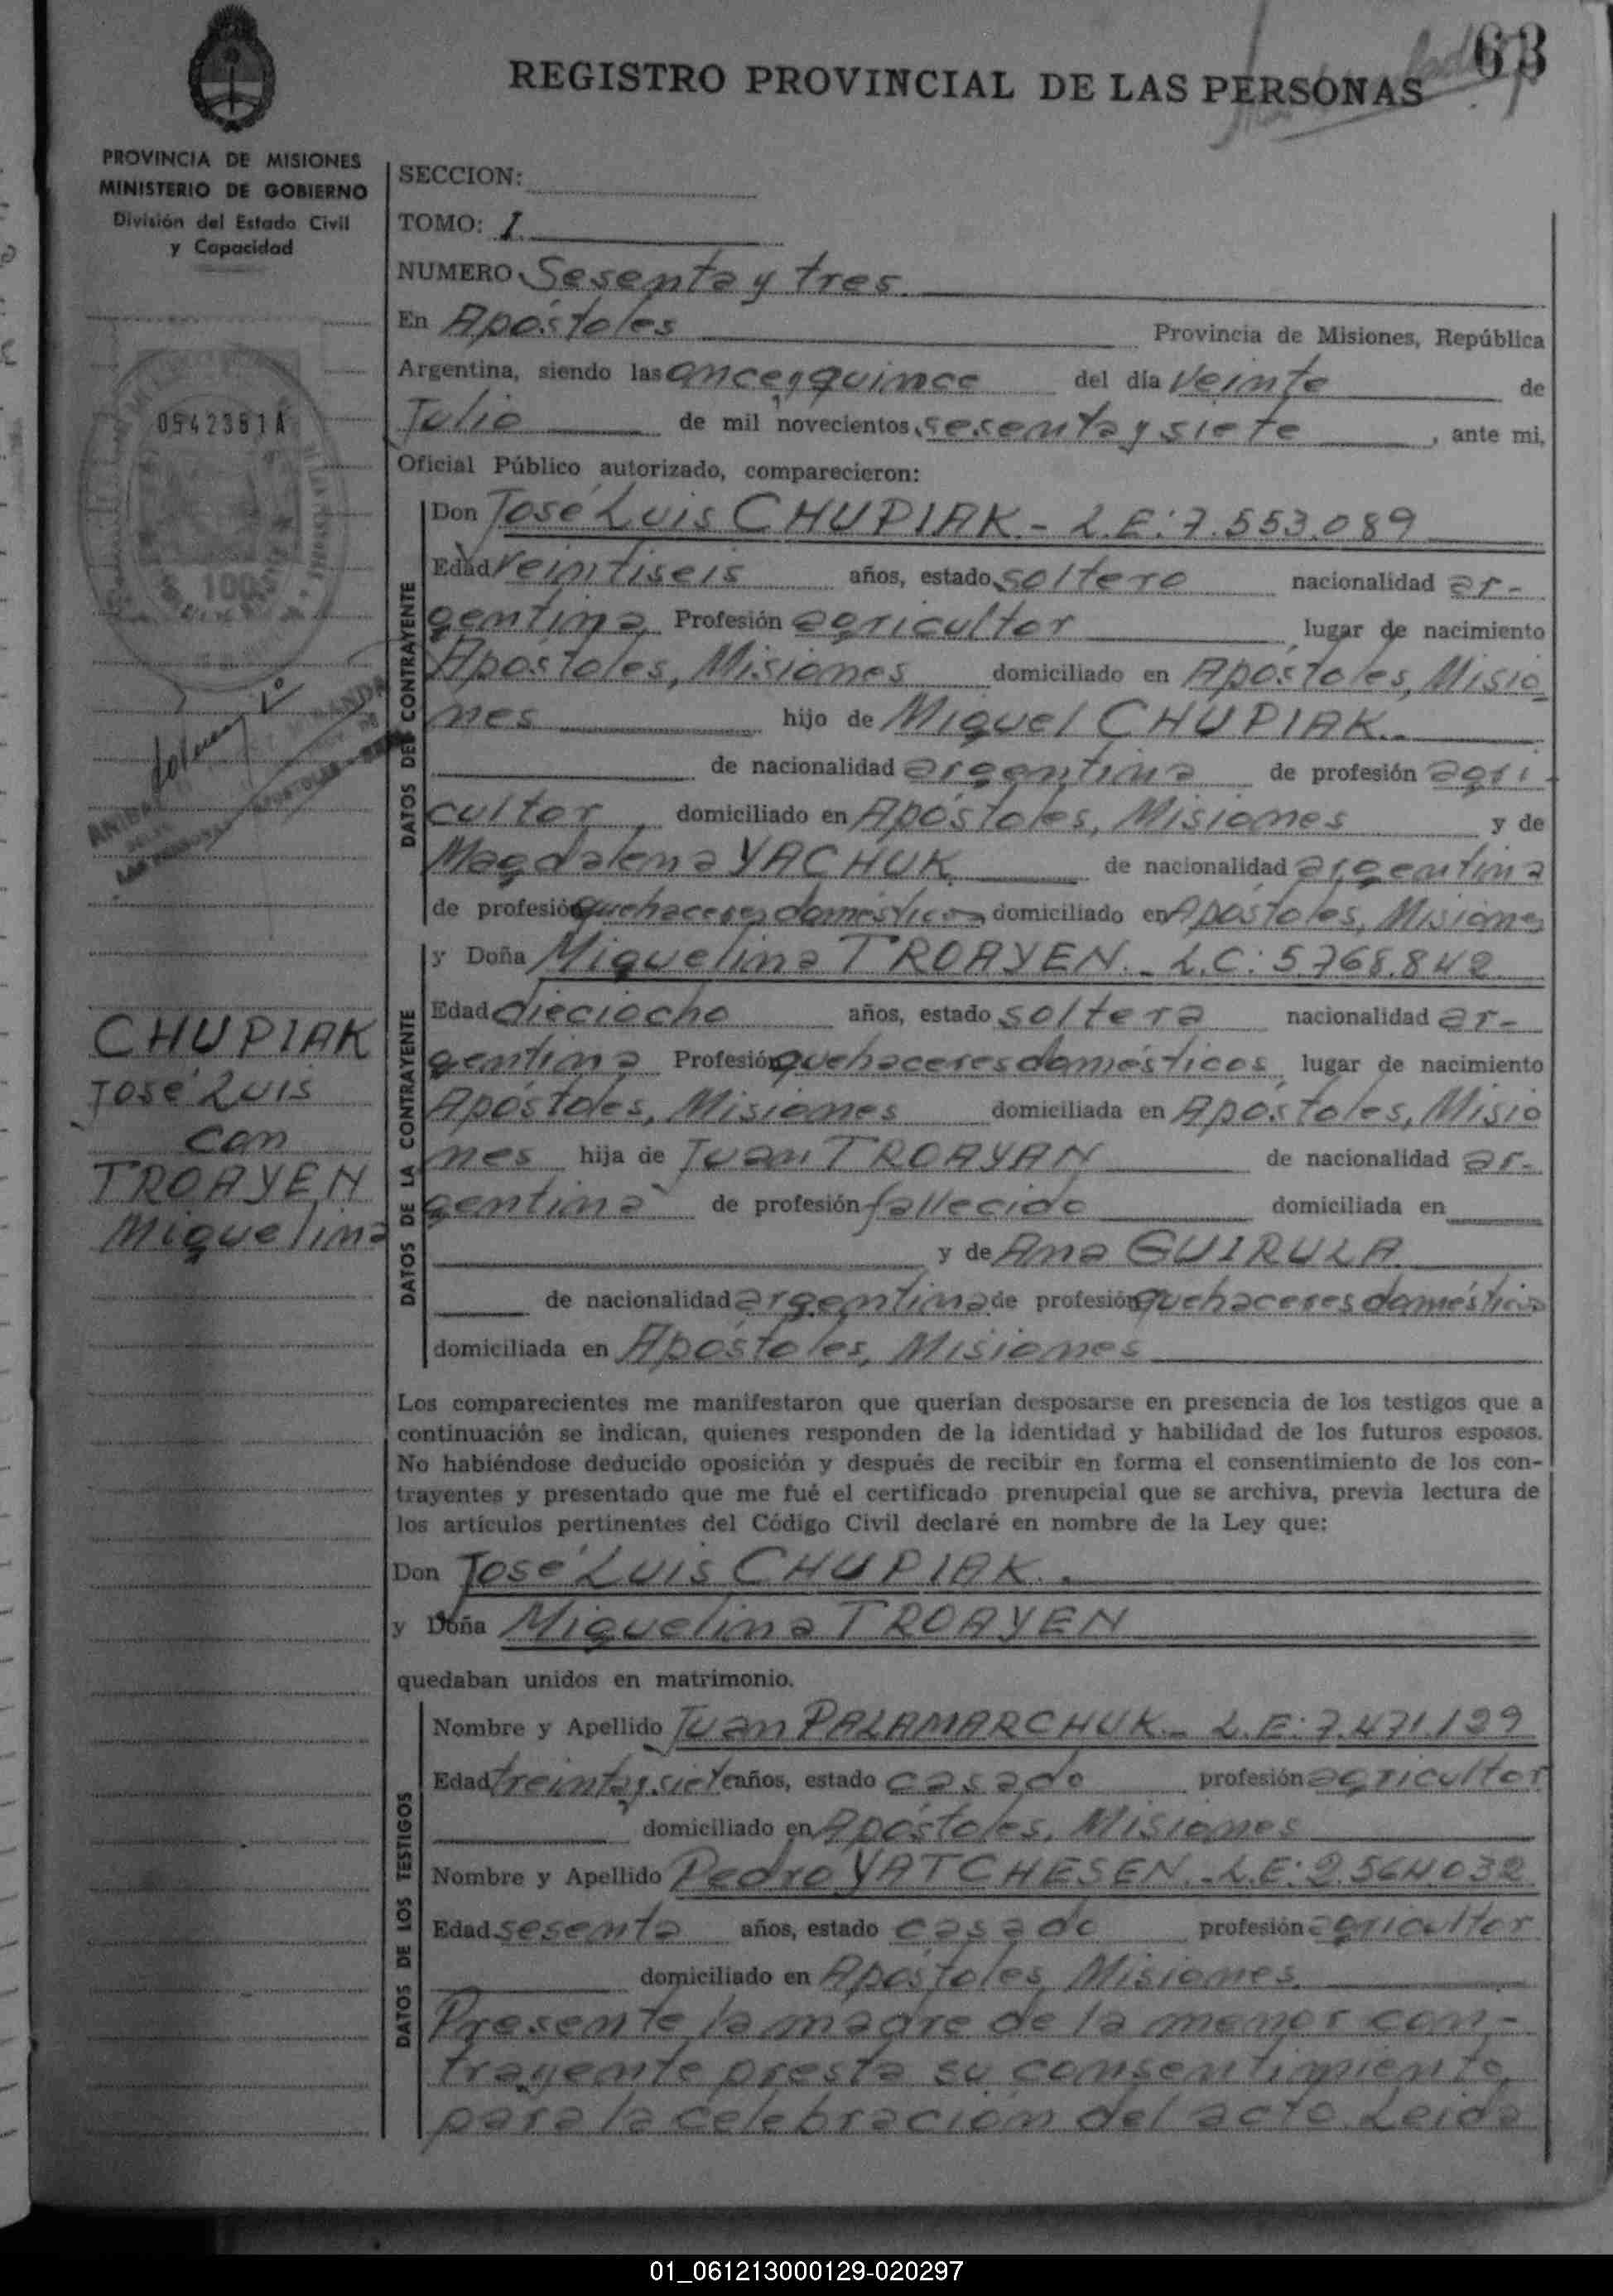 63
REGISTRO PROVINCIAL DE LAS PERSONAS
PROVINCIA DE MISIONES
MINISTERIO DE GOBIERNO
División del Estado Civil
y Capacidad
0542381A
100
CHUPIAK
José Luis
con
TROAYEN
Miguelina
SECCION:
TOMO: I
NUMERO Sesenta y tres
En Apóstoles Provincia de Misiones, República
Argentina, siendo las once y quince del día veinte de
Julio de mil novecientos sesenta y siete, ante mi,
Oficial Público autorizado, comparecieron:
DATOS DEL CONTRAYENTE
Don José Luis CHUPIAK - L.E: 7.553.089
Edad veintiseis años, estado soltero nacionalidad ar-
gentina Profesión agricultor, lugar de nacimiento
Apóstoles, Misiones domiciliado en Apóstoles, Misio
nes hijo de Miguel CHUPIAK.
de nacionalidad argentina de profesión agri-
cultor, domiciliado en Apóstoles, Misiones y de
Magdalena YACHUK de nacionalidad argentina
de profesión quehaceres domésticos domiciliado en Apóstoles, Misiones
DATOS DE LA CONTRAYENTE
y Doña Miguelina TROAYEN. - L.C: 5.768.842
Edad dieciocho años, estado soltera nacionalidad ar-
gentina Profesión quehaceres domésticos, lugar de nacimiento
Apóstoles, Misiones domiciliada en Apóstoles, Misio
nes hija de Juan TROAYAN de nacionalidad ar-
gentina de profesión fallecido domiciliada en
y de Ana GUIRULA.
de nacionalidad argentina de profesión quehaceres domésticos
domiciliada en Apóstoles, Misiones
Los comparecientes me manifestaron que querían desposarse en presencia de los testigos que a
continuación se indican, quienes responden de la identidad y habilidad de los futuros esposos.
No habiéndose deducido oposición y después de recibir en forma el consentimiento de los con-
trayentes y presentado que me fué el certificado prenupcial que se archiva, previa lectura de
los artículos pertinentes del Código Civil declaré en nombre de la Ley que:
Don José Luis CHUPIAK.
y Doña Miguelina TROAYEN
quedaban unidos en matrimonio.
DATOS DE LOS TESTIGOS
Nombre y Apellido Juan PALAMARCHUK - L.E: 7.471.199
Edad treinta y siete años, estado casado profesión agricultor
domiciliado en Apóstoles, Misiones
Nombre y Apellido Pedro YATCHESEN. - L.E: 2.564.032
Edad sesenta años, estado casado profesión agricultor
domiciliado en Apóstoles, Misiones.
Presente la madre de la menor con-
trayente presta su consentimiento
para la celebración del acto. Leida
01_061213000129-020297